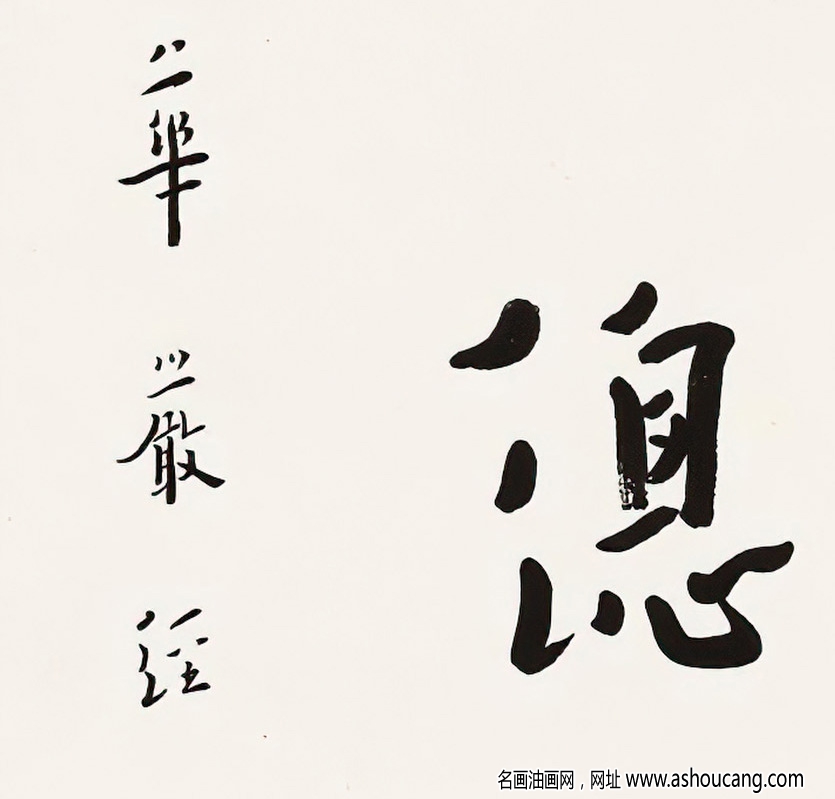 總
華嚴經
名画油画网，网址 www.ashoucang.com